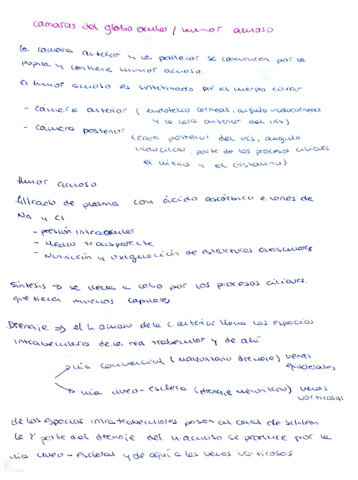 camaras del globo ocular / humor acuoso
la camara anterior y la posterior se comunican por la
pupila y contiene humor acuoso.
El humor acuoso es sintetizado por el cuerpo ciliar
- cámara anterior ( endotelio corneal, angulo iridocorneal
y la cara anterior del iris)
- cámara posterior
(cara posterior del iris, angulo
iridociliar, parte de los procesos ciliares
el vitreo y el cristalino)
Humor acuoso
filtrado de plasma con ácido ascórbico e iones de
Na y Cl
- presión intraocular
- Medio transparente
- Nutrición y oxigenación de estructuras avasculares
Síntesis → se lleva a cabo por los procesos ciliares.
que tienen muchos capilares
Drenaje ⇒ el h. acuoso de la c. anterior llena los espacios
intratrabeculares de la red trabecular y de ahí
via convencional ( mayoritario drenaje) venas
epiesclerales
via uveo-esclera (drenaje minoritario) venas
vorticosas
de los espacios intratrabeculares pasan al canal de schlem
la 2ª parte del drenaje del h. acuoso se produce por la
via uveo-escleral y de aqui a las venas vorticosas